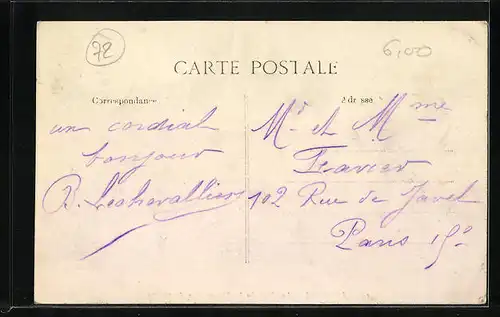 72
6,00
CARTE POSTALE
Correspondance
Adresse
un cordial
bonjour
B. Lechevallier
Mr et Mme
102 Rue de Javel
Paris 15e